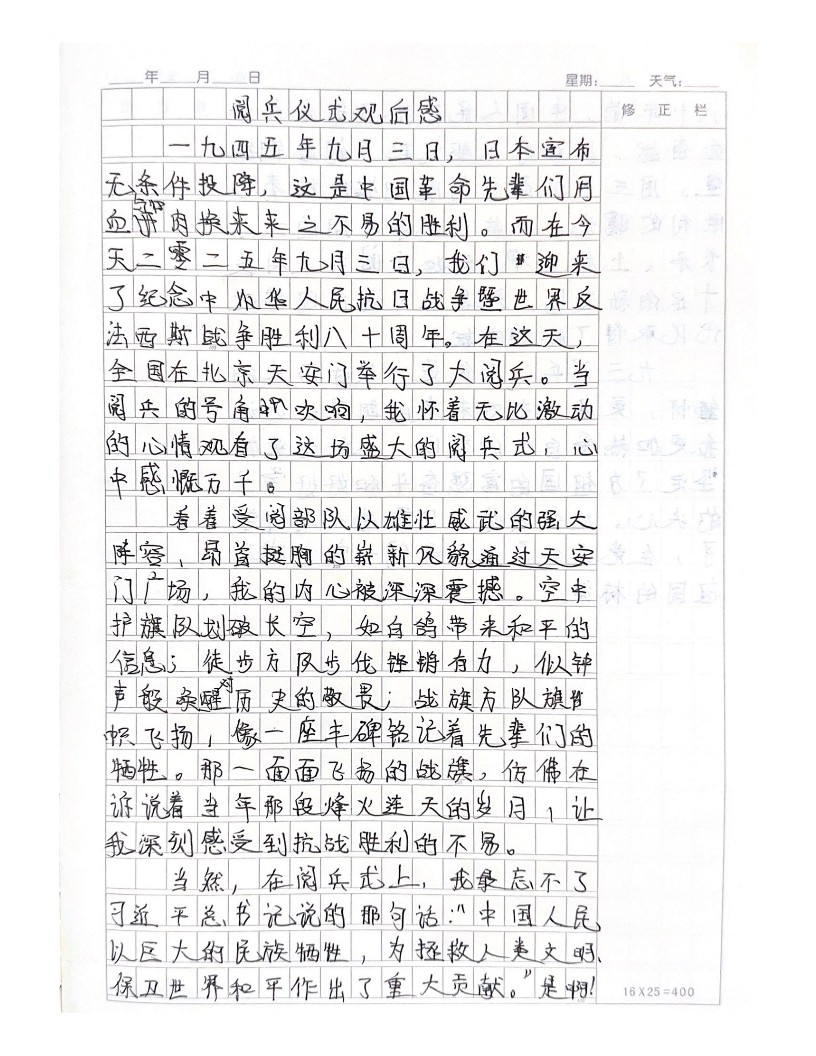 年 月 日 星期: 天气:
修 正 栏
阅兵仪式观后感
一九四五年九月三日，日本宣布
无条件投降，这是中国革命先辈们用
血与肉换来来之不易的胜利。而在今
天二零二五年九月三日，我们迎来
了纪念中华人民抗日战争暨世界反
法西斯战争胜利八十周年。在这天，
全国在北京天安门举行了大阅兵。当
阅兵的号角吹响，我怀着无比激动
的心情观看了这场盛大的阅兵式，心
中感慨万千。
看着受阅部队以雄壮威武的强大
阵容，昂首挺胸的崭新风貌通过天安
门广场，我的内心被深深震撼。空中
护旗队划破长空，如白鸽带来和平的
信息；徒步方队步伐铿锵有力，似钟
声般唤醒对历史的敬畏；战旗方队旗
帜飞扬，像一座丰碑铭记着先辈们的
牺牲。那一面面飞扬的战旗，仿佛在
诉说着当年那段烽火连天的岁月，让
我深刻感受到抗战胜利的不易。
当然，在阅兵式上，我最忘不了
习近平总书记说的那句话："中国人民
以巨大的民族牺牲，为拯救人类文明、
保卫世界和平作出了重大贡献。"是啊!
16X25=400